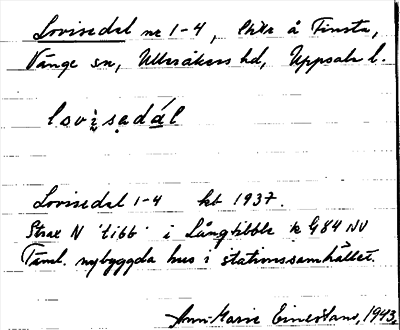 Lovisedal nr 1-4, [...] å Finsta,
Vänge sn, Ulleråkers hd, Uppsala l.
lovisadál
Lovisedal 1-4 kb 1937.
Strax N 'tibb' i Långtibble k G84 NV
Täml. nybyggda hus i stationssamhället.
Ann-Marie Einerstam, 1943.